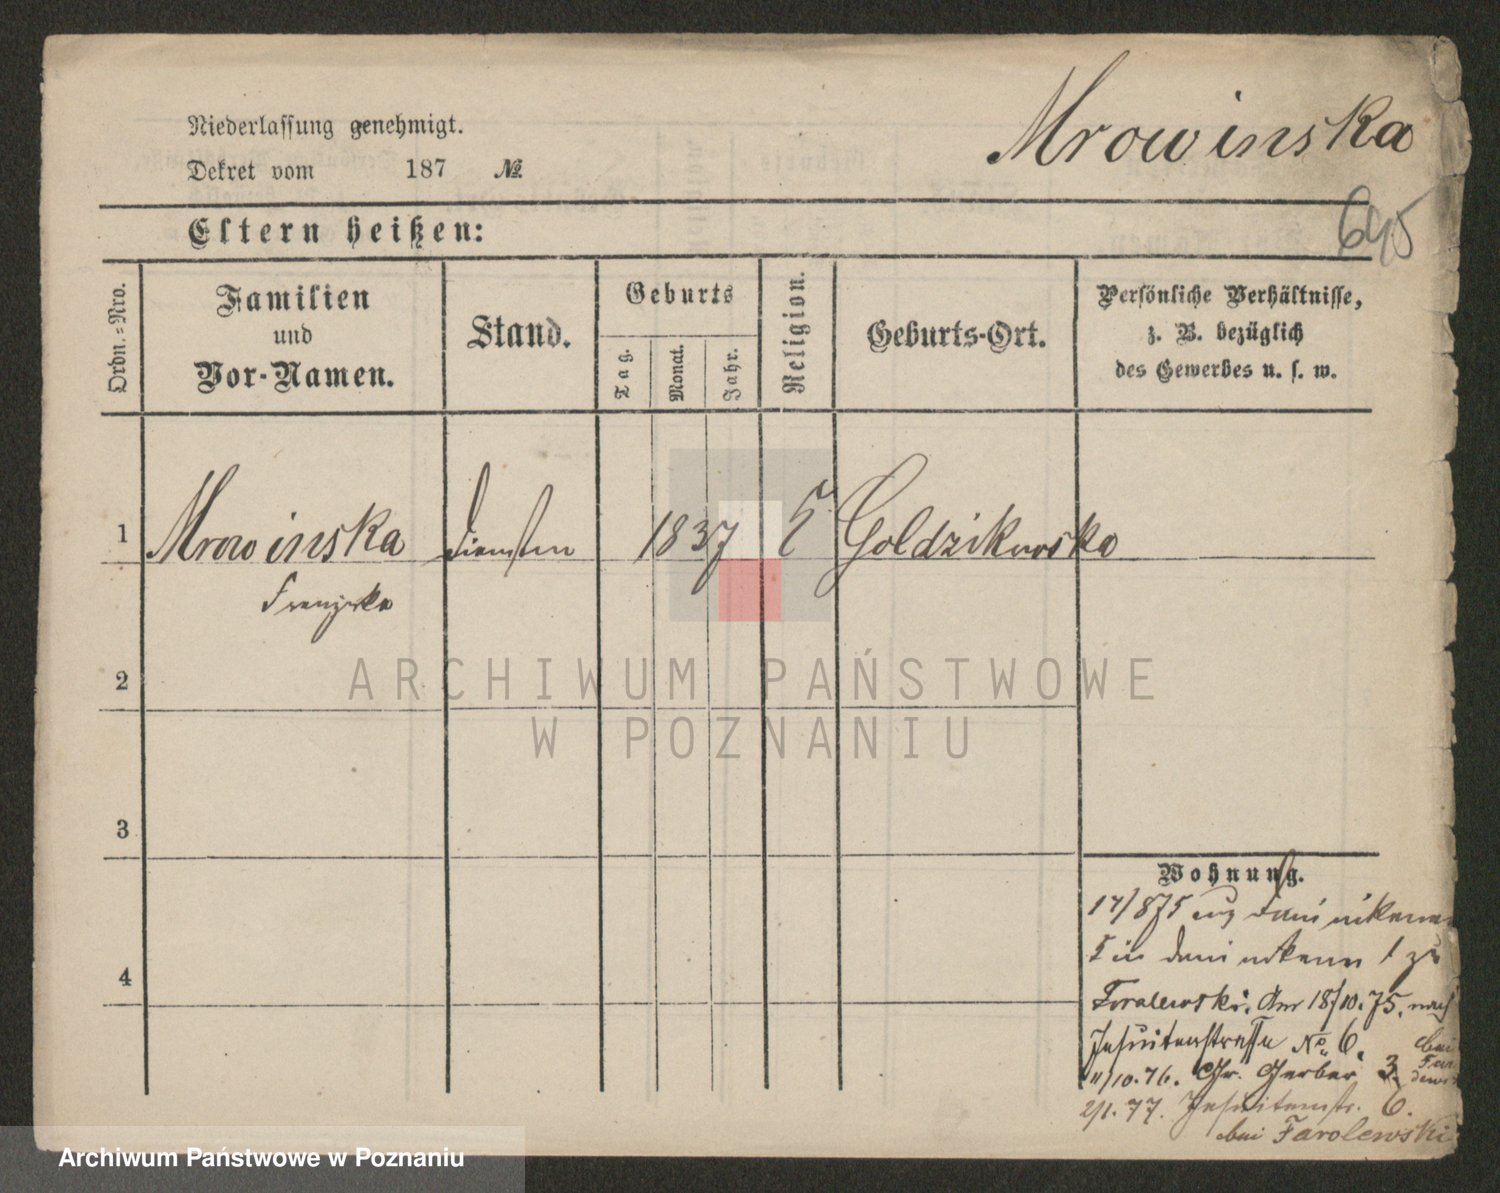 Mrowinska
Niederlassung genehmigt.
Dekret vom 187 №
645
Eltern heißen:
Ordn.-Nro.
Familien
und
Vor-Namen.
Stand.
Geburts
Tag.
Monat.
Jahr.
Religion.
Geburts-Ort.
Persönliche Verhältnisse,
z. B. bezüglich
des Gewerbes u. s. w.
1 Mrowinska 1837
Franziska
2
3
4
Wohnung.
17/875
1 zu
Am 18/10.75. nach
Jesuitenstraße No 6.
11/10.76. Gr. Gerber 3.
bei
2/1.77. Jesuitenstr. 6.
bei Farolewski
ARCHIWUM PAŃSTWOWE
W POZNANIU
Archiwum Państwowe w Poznaniu